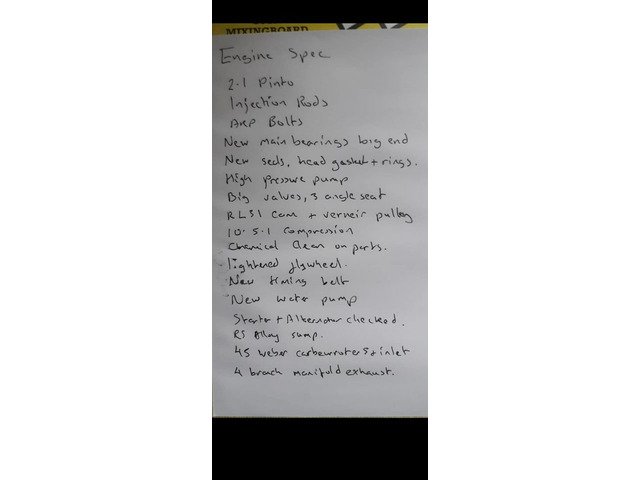 MIXINGBOARD
Engine Spec
2.1 Pinto
Injection Rods
ARP Bolts
New main bearings big end
New seals, head gasket + rings.
High pressure pump
Big valves, 3 angle seat
RL31 Cam + verneir pulley
10.5.1 Compression
Chemical Clean on parts.
lightened flywheel.
New timing belt
New water pump
Starter + Alternator checked.
RS Alloy sump.
45 weber carbewroters + inlet
4 branch manifold exhaust.